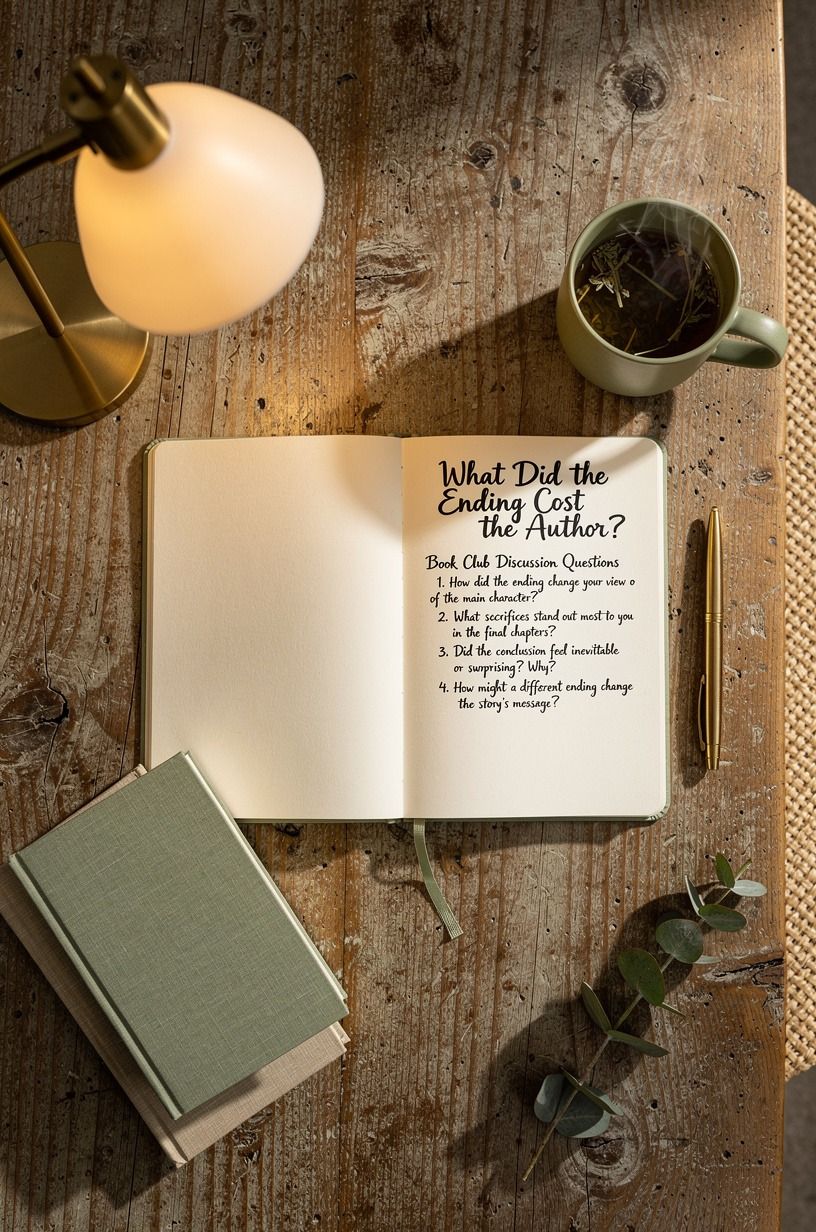 What Did the
Ending Cost
the Author?
Book Club Discussion Questions
1. How did the ending change your view o
of the main character?
2. What sacrifices stand out most to you
in the final chapters?
3. Did the conclussion feel inevittable
or surprising? Why?
4. How might a different ending change
the story's message?